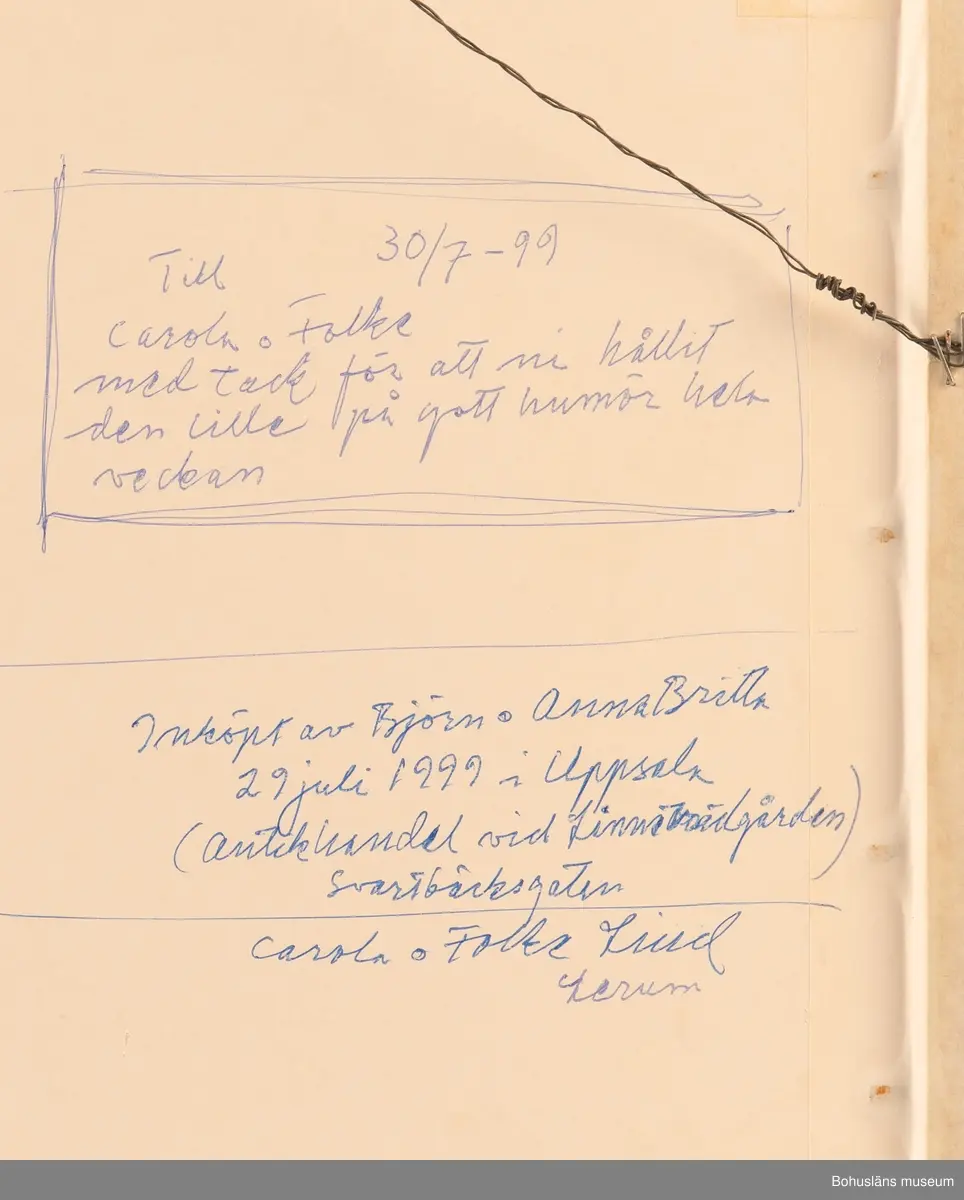 30/7-99
Till
Carola o Folke
med tack för att ni hållit
den lille på gott humör hela
veckan
Inköpt av Björn o AnnaBritta
29 juli 1999 i Uppsala
(Antikhandel vid Linnéträdgården)
Svartbäcksgatan
Carola o Folke Lind
Lerum
Bohusläns museum